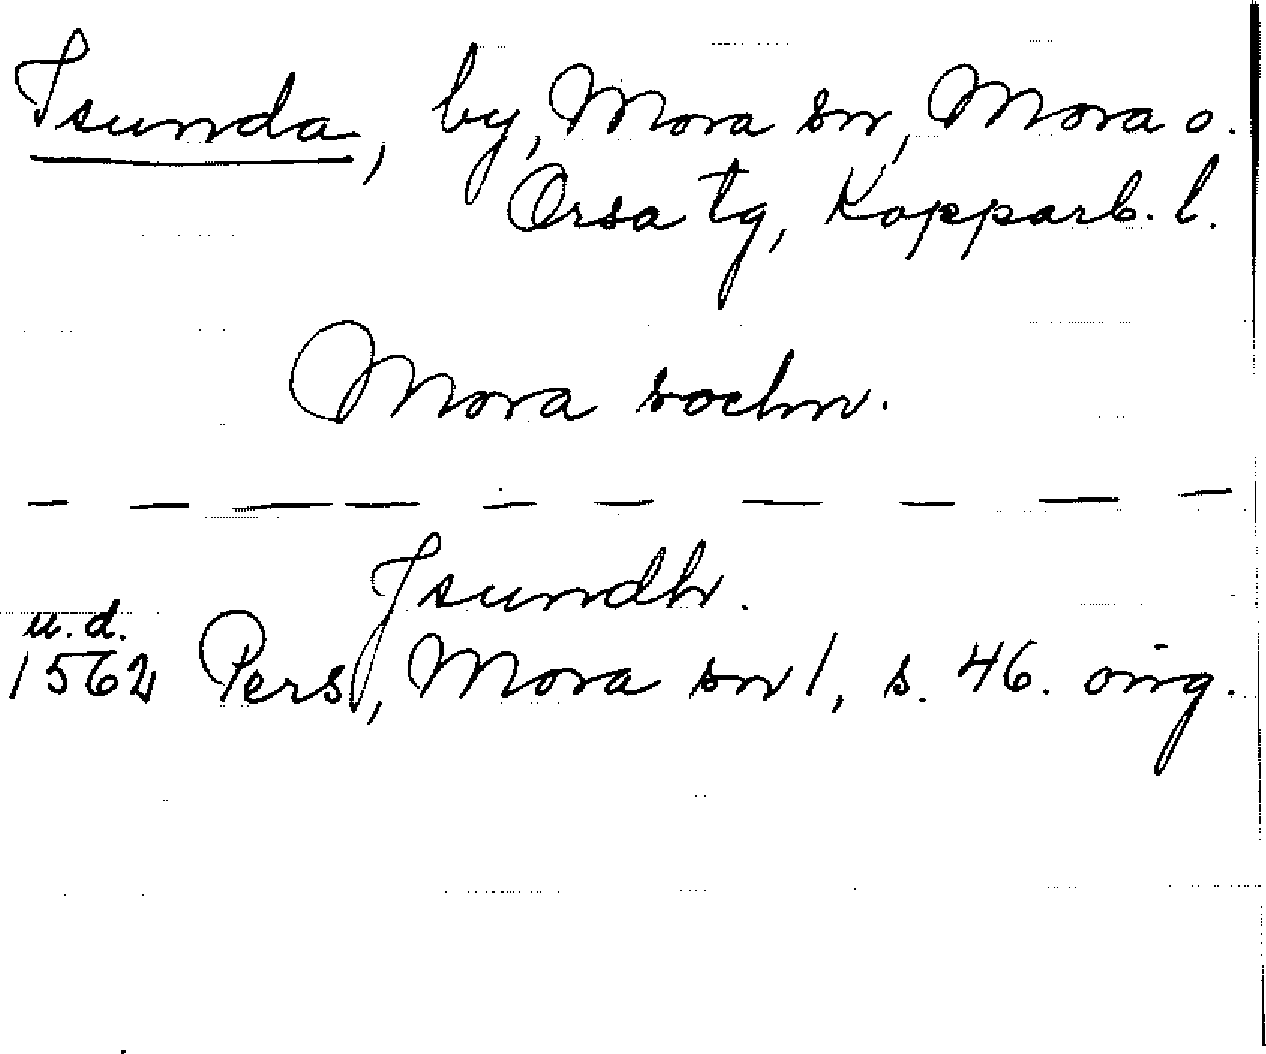 Isunda, by, Mora sn, Mora o.
Orsa tg, Kopparb. l.
Mora sochn.
Isundh.
u.d.
1562 Pers, Mora sn 1, s. 46. oing.